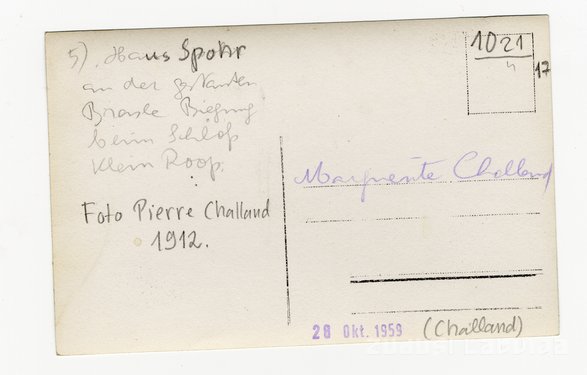 5). Haus Spohr
an der
Brasle Biegung
beim Schloß
Klein Roop.
Foto Pierre Challand
1912.
1021
4
17
Marguerite Challand
28 Okt. 1959
(Challand)